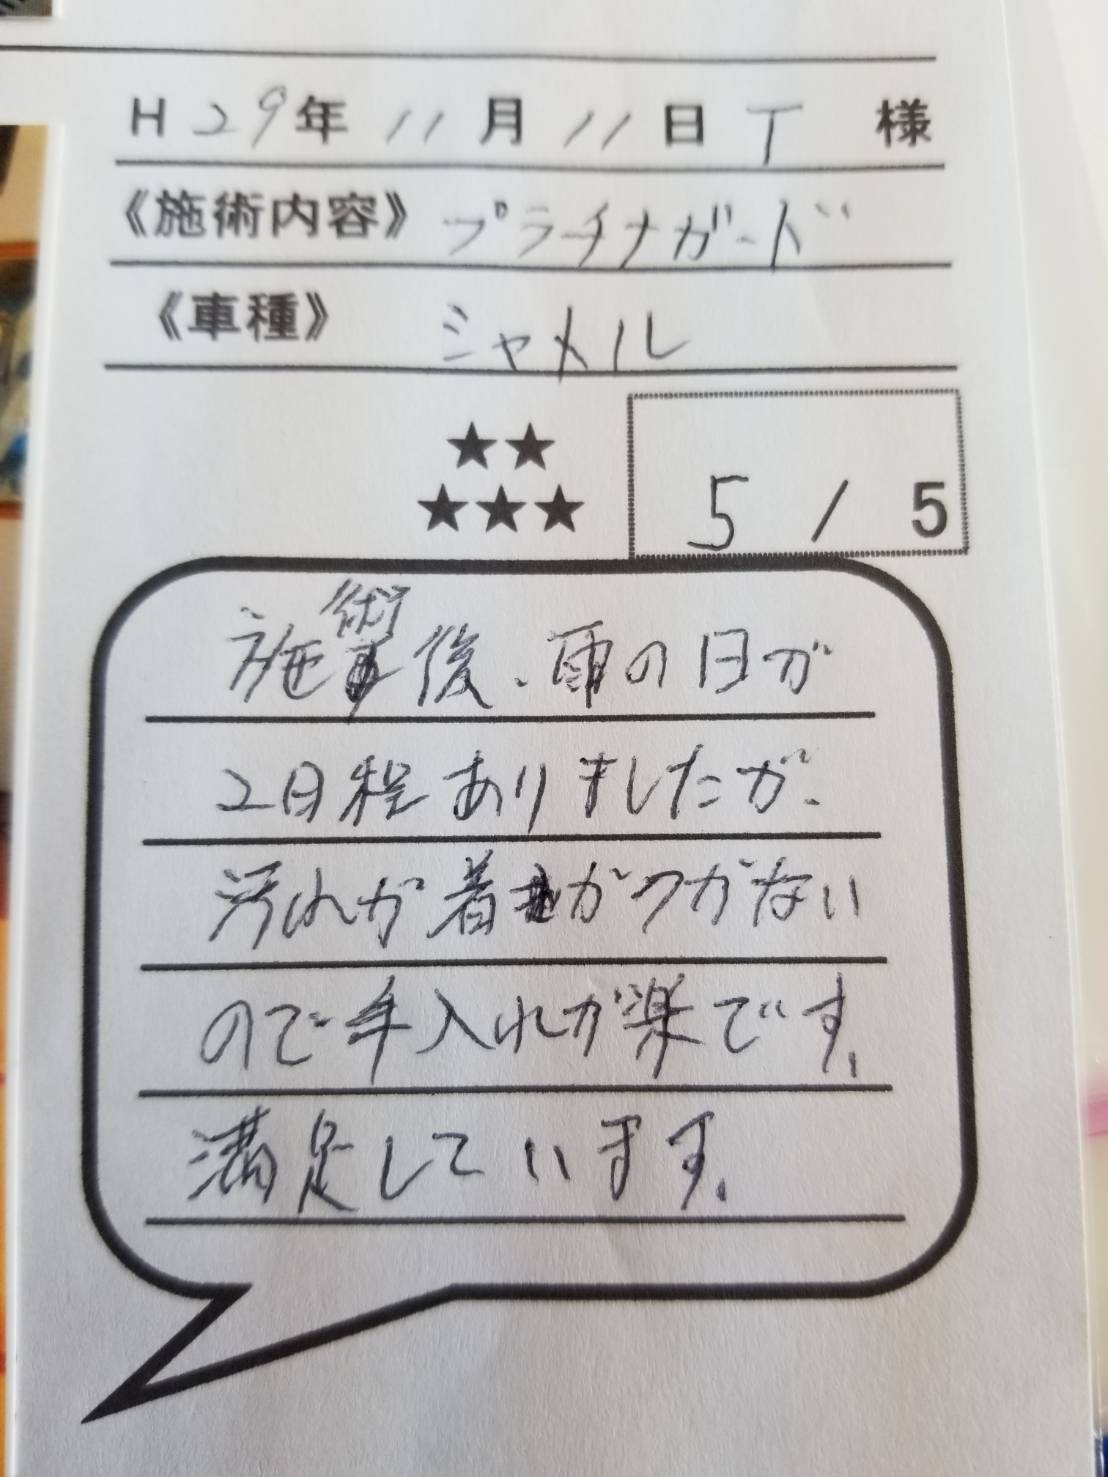 H 29年 11月 11日 T 様
《施術内容》 プラチナガード
《車種》 シャメル
★★
★★★
5 / 5
施術後、雨の日が
2日程ありましたが、
汚れが着がつがない
ので手入れが楽です。
満足しています。